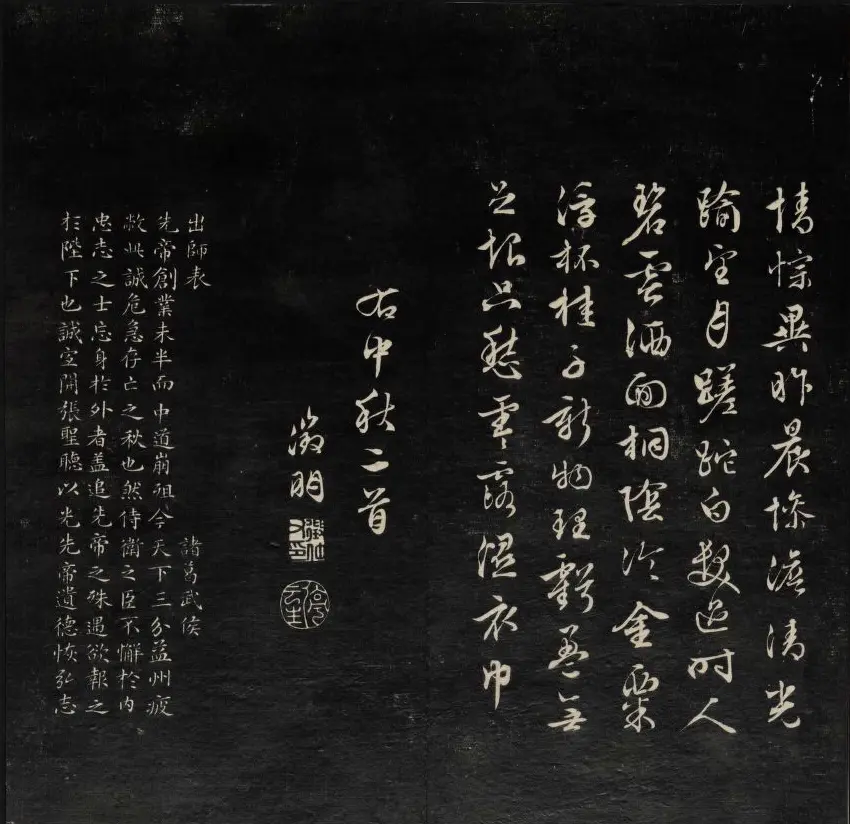 情悰異昨晨惨澹清光
踰望月蹉跎白髮過時人
碧雲洒面桐陰冷金粟
浮杯桂子新物理虧盈無
足恨只愁零露湿衣巾
右中秋二首
徵明
出師表
諸葛武侯
先帝創業未半而中道崩殂今天下三分益州疲
敝此誠危急存亡之秋也然侍衛之臣不懈於内
忠志之士忘身於外者盖追先帝之殊遇欲報之
於陛下也誠宜開張聖聽以光先帝遺德恢弘志